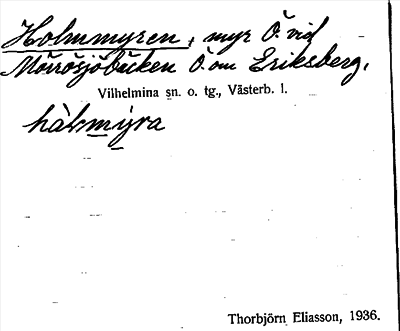 Holmmyren, myr Ö. vid
Mörösjöbäcken Ö. om Eriksberg,
Vilhelmina sn. o. tg., Västerb. l.
hàlmmýra
Thorbjörn Eliasson, 1936.